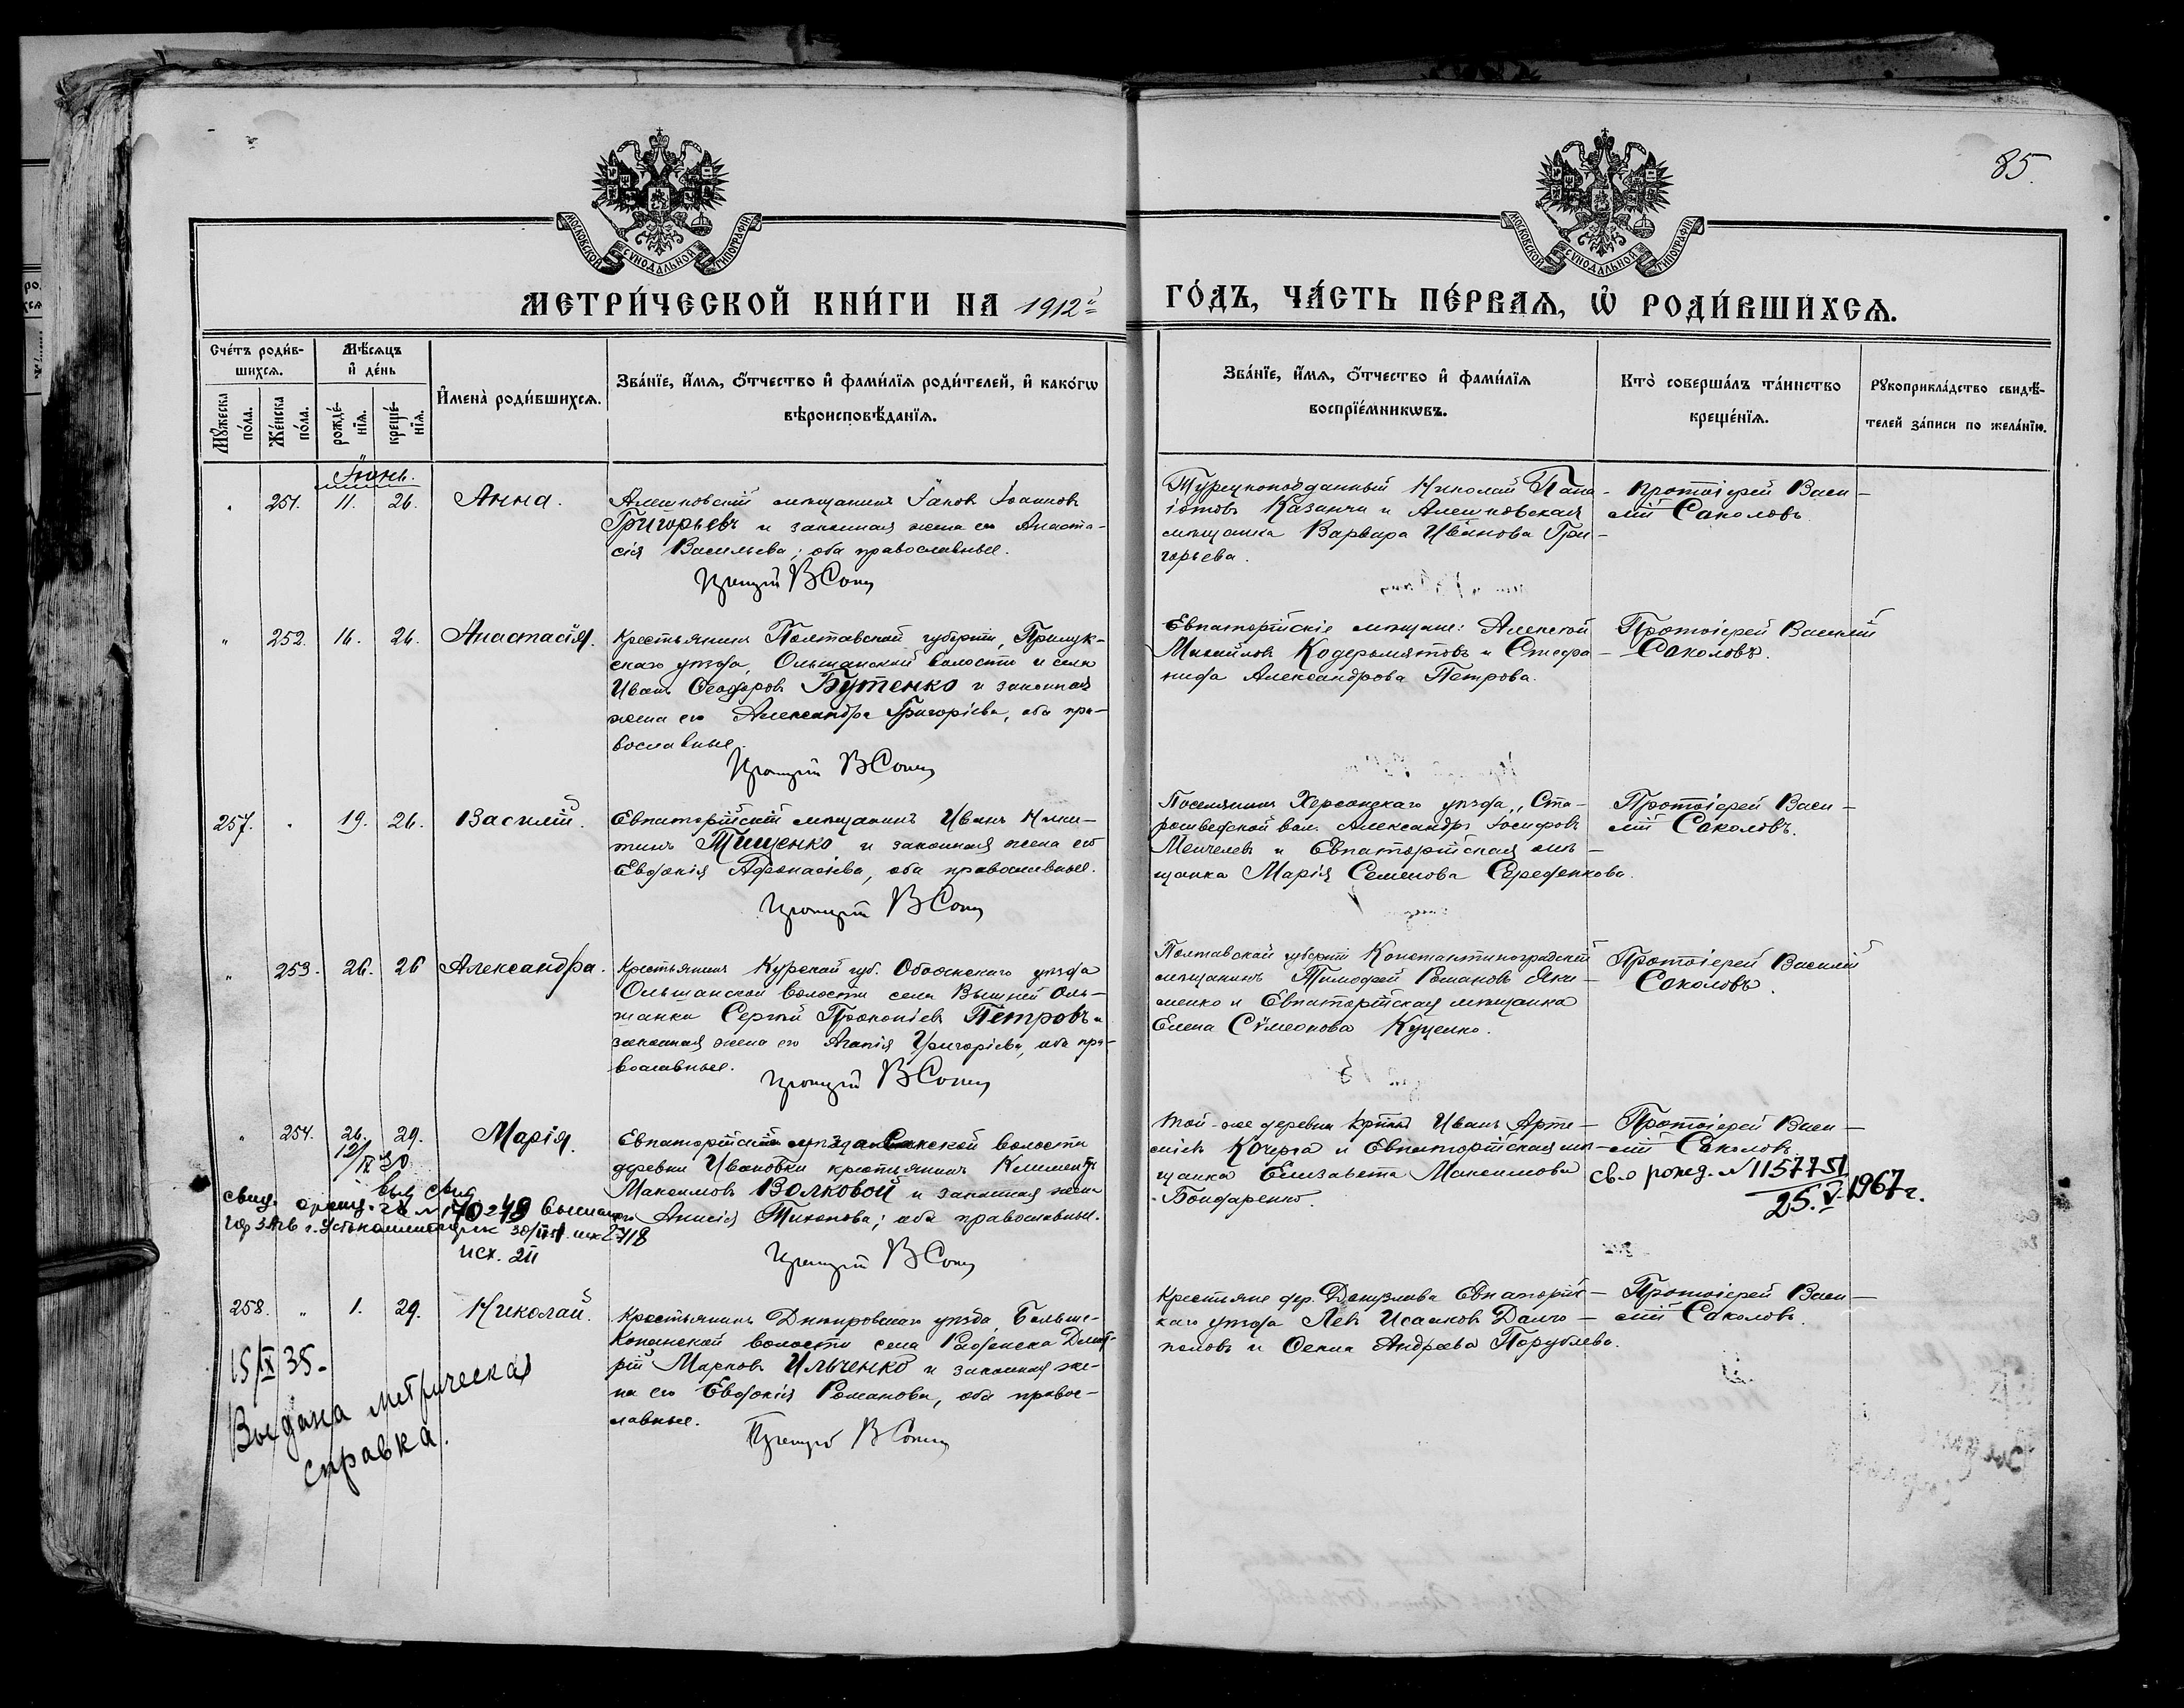 85.
МОСКОВСКОЙ СѴНОДАЛЬНОЙ ТИПОГРАФІИ
МОСКОВСКОЙ СѴНОДАЛЬНОЙ ТИПОГРАФІИ
МЕТРИ́ЧЕСКОЙ КНИ́ГИ НА 1912й ГО́ДЪ, ЧА́СТЬ ПЕ́РВАѦ, Ѡ҆ РОДИ́ВШИХСѦ.
Сче́тъ роди́в-
шихсѧ.
Мꙋ́жеска по́ла.
Же́нска по́ла.
Мѣ́сѧцъ
и҆ де́нь
рожде́-
нїѧ.
креще́-
нїѧ.
И҆мена̀ роди́вшихсѧ.
Зва́нїе, и҆́мѧ, ѻ҆́тчество и҆ фами́лїѧ роди́телей, и҆ како́гѡ
вѣроисповѣ́данїѧ.
Зва́нїе, и҆́мѧ, ѻ҆́тчество и҆ фами́лїѧ
воспрїе́мникѡвъ.
Кто̀ соверша́лъ та́инство
креще́нїѧ.
Рꙋкоприкла́дство свидѣ́-
телей за́писи по жела́нїю.
Іюнь.
" 251. 11. 26. Анна.
Алешковскій мѣщанинъ Іаковъ Іоанновъ
Григорьевъ и законная жена его Анаста-
сія Васильева; оба православные.
Турецкоподданный Николай Пана-
іотовъ Казанчи и Алешковская
мѣщанка Варвара Иванова Гри-
горьева.
Протоіерей Васи-
лій Соколовъ
" 252. 16. 26. Анастасія.
Крестьянинъ Полтавской губерніи, Прилук-
скаго уѣзда, Ольшанской волости и села
Иванъ Ѳеодоровъ Бутенко и законная
жена его Александра Григоріева, оба пра-
вославные.
Евпаторійскіе мѣщане: Алексѣй
Михайловъ и Стефа-
нида Александрова Петрова.
Протоіерей Василій
Соколовъ.
257. " 19. 26. Василій.
Евпаторійскій мѣщанинъ Иванъ Ники-
тинъ Тищенко и законная жена его
Евдокія Афонасіева, оба православные.
Поселянинъ Херсонскаго уѣзда, Ста-
рошведской вол. Александръ Іосифовъ
и Евпаторійская мѣ-
щанка Марія Семенова Середенкова.
Протоіерей Васи-
лій Соколовъ.
" 253. 26. 26 Александра.
Крестьянинъ Курской губ. Обоянскаго уѣзда
Ольшанской волости села Вышней Оль-
шанки Сергѣй Прокопіевъ Петровъ и
законная жена его Агапія Григоріева, оба пра-
вославные.
Полтавской губерніи Константиноградскій
мѣщанинъ Тимофей Романовъ Яки-
менко и Евпаторійская мѣщанка
Елена Сѵмеонова Куценко.
Протоіерей Василій
Соколовъ.
" 254. 26. 29. Марія.
Евпаторійскаго уѣзда Сакской волости
деревни Ивановки крестьянинъ Климентъ
Максимовъ Волковой и законная жена
его Анисія Тихонова; оба православные.
Той-же деревни Иванъ Арте-
міевъ Кочерга и Евпаторійская мѣ-
щанка Елизавета Максимова
Бондаренко.
Протоіерей Васи-
лій Соколовъ
Св. о рожд. N 1157751
25.V.1967 г.
12/IX 30
выд свид
исх. 211
258. " 1. 29. Николай.
Крестьянинъ Днѣпровскаго уѣзда, Больше-
Копанской волости села Раденска Дмит-
рій Марковъ Ильченко и законная же-
на его Евдокія Романова, оба право-
славные.
Крестьяне дер. Донузлава Евпаторій-
каго уѣзда Левъ Исааковъ Долго-
половъ и Андреева Порублева.
Протоіерей Васи-
лій Соколовъ.
15/IX 35.
Выдана метрическая
справка.